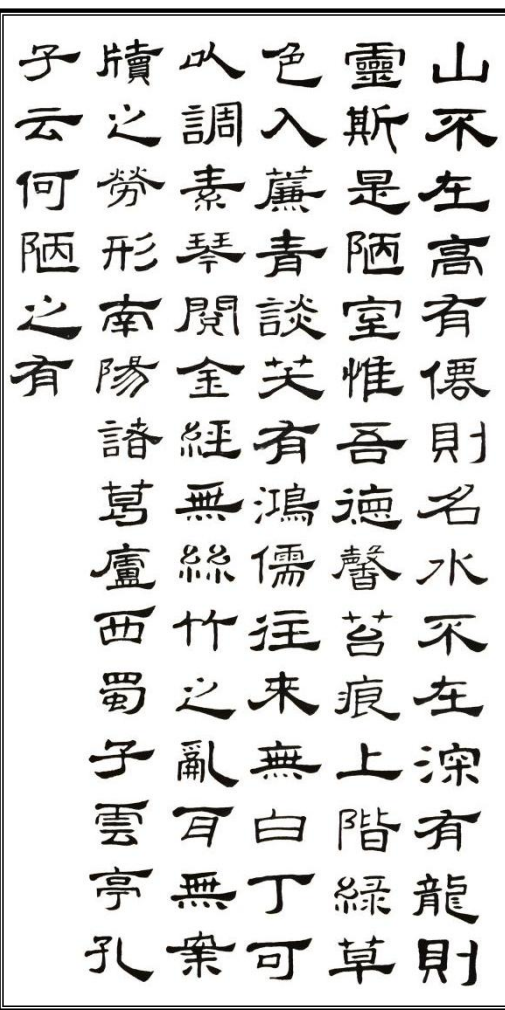 山不在高有僊則名水不在深有龍則
靈斯是陋室惟吾德馨苔痕上階綠草
色入簾青談笑有鴻儒往來無白丁可
以調素琴閱金經無絲竹之亂耳無案
牘之勞形南陽諸葛廬西蜀子雲亭孔
子云何陋之有